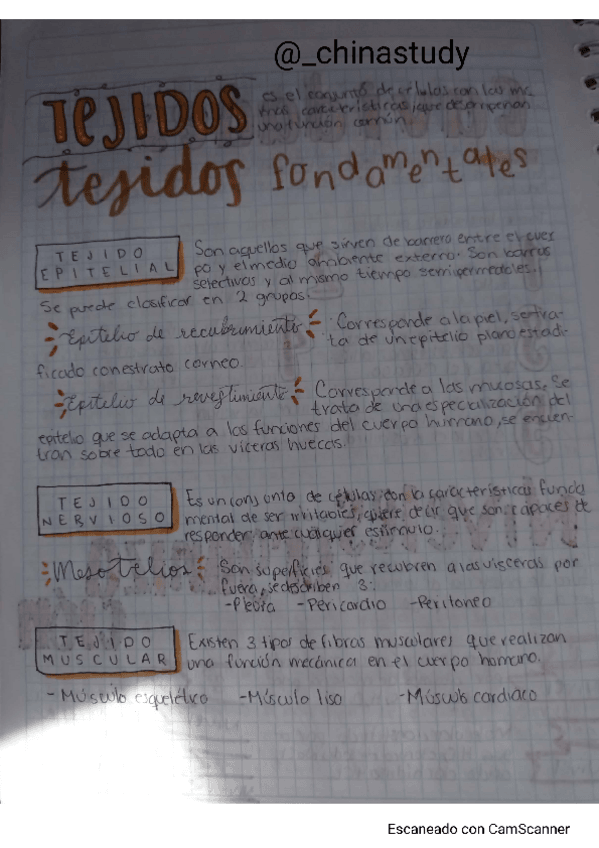 @_chinastudy
TEJIDOS
es el conjunto de células con las mis
mas características, que desempeñan
una función común.
tejidos fundamentales
TEJIDO
EPITELIAL
Son aquellos que sirven de barrera entre el cuer
po y el medio ambiente externo. Son barreras
selectivas y al mismo tiempo semipermeables.
Se puede clasificar en 2 grupos:
Epitelio de recubrimiento
Corresponde a la piel, se tra-
ta de un epitelio plano estadi-
ficado con estrato corneo.
Epitelio de revestimiento
Corresponde a las mucosas, Se
trata de una especialización del
epitelio que se adapta a las funciones del cuerpo humano, se encuen-
tran sobre todo en las viceras huecas.
TEJIDO
NERVIOSO
Es un conjunto de células, con la características funda
mental de ser irritables, quiere decir que son capaces de
responder ante cualquier estímulo.
Mesotelios
Son superficies que recubren a las visceras por
fuera, se describen 3:
-Pleura -Pericardio -Peritoneo
TEJIDO
MUSCULAR
Existen 3 tipos de fibras musculares que realizan
una función mecánica en el cuerpo humano.
-Músculo esquelético -Músculo liso -Músculo cardiaco
Escaneado con CamScanner